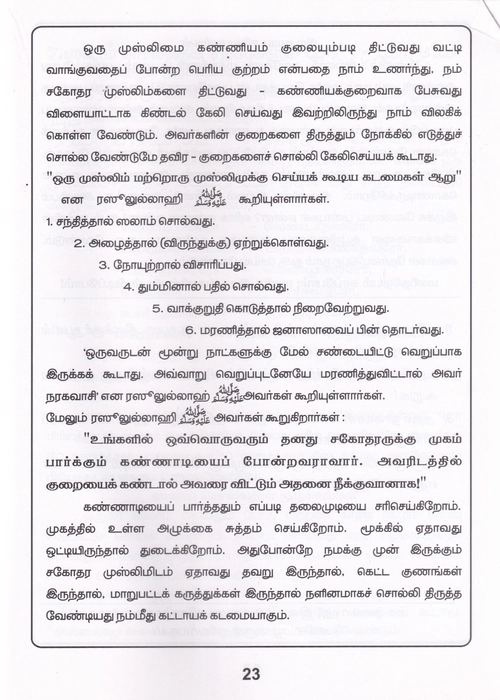 ஒரு முஸ்லிமை கண்ணியம் குலையும்படி திட்டுவது வட்டி
வாங்குவதைப் போன்ற பெரிய குற்றம் என்பதை நாம் உணர்ந்து, நம்
சகோதர முஸ்லிம்களை திட்டுவது - கண்ணியக்குறைவாக பேசுவது
விளையாட்டாக கிண்டல் கேலி செய்வது இவற்றிலிருந்து நாம் விலகிக்
கொள்ள வேண்டும். அவர்களின் குறைகளை திருத்தும் நோக்கில் எடுத்துச்
சொல்ல வேண்டுமே தவிர - குறைகளைச் சொல்லி கேலிசெய்யக் கூடாது.
"ஒரு முஸ்லிம் மற்றொரு முஸ்லிமுக்கு செய்யக் கூடிய கடமைகள் ஆறு"
என ரஸூலுல்லாஹி ﷺ கூறியுள்ளார்கள்.
1. சந்தித்தால் ஸலாம் சொல்வது.
2. அழைத்தால் (விருந்துக்கு) ஏற்றுக்கொள்வது.
3. நோயுற்றால் விசாரிப்பது.
4. தும்மினால் பதில் சொல்வது.
5. வாக்குறுதி கொடுத்தால் நிறைவேற்றுவது.
6. மரணித்தால் ஜனாஸாவைப் பின் தொடர்வது.
'ஒருவருடன் மூன்று நாட்களுக்கு மேல் சண்டையிட்டு வெறுப்பாக
இருக்கக் கூடாது. அவ்வாறு வெறுப்புடனேயே மரணித்துவிட்டால் அவர்
நரகவாசி' என ரஸூலுல்லாஹ் ﷺ அவர்கள் கூறியுள்ளார்கள்.
மேலும் ரஸூலுல்லாஹி ﷺ அவர்கள் கூறுகிறார்கள் :
"உங்களில் ஒவ்வொருவரும் தனது சகோதரருக்கு முகம்
பார்க்கும் கண்ணாடியைப் போன்றவராவார். அவரிடத்தில்
குறையைக் கண்டால் அவரை விட்டும் அதனை நீக்குவானாக!"
கண்ணாடியை பார்த்ததும் எப்படி தலைமுடியை சரிசெய்கிறோம்.
முகத்தில் உள்ள அழுக்கை சுத்தம் செய்கிறோம். மூக்கில் ஏதாவது
ஒட்டியிருந்தால் துடைக்கிறோம். அதுபோன்றே நமக்கு முன் இருக்கும்
சகோதர முஸ்லிமிடம் ஏதாவது தவறு இருந்தால், கெட்ட குணங்கள்
இருந்தால், மாறுபட்டக் கருத்துக்கள் இருந்தால் நளினமாகச் சொல்லி திருத்த
வேண்டியது நம்மீது கட்டாயக் கடமையாகும்.
23